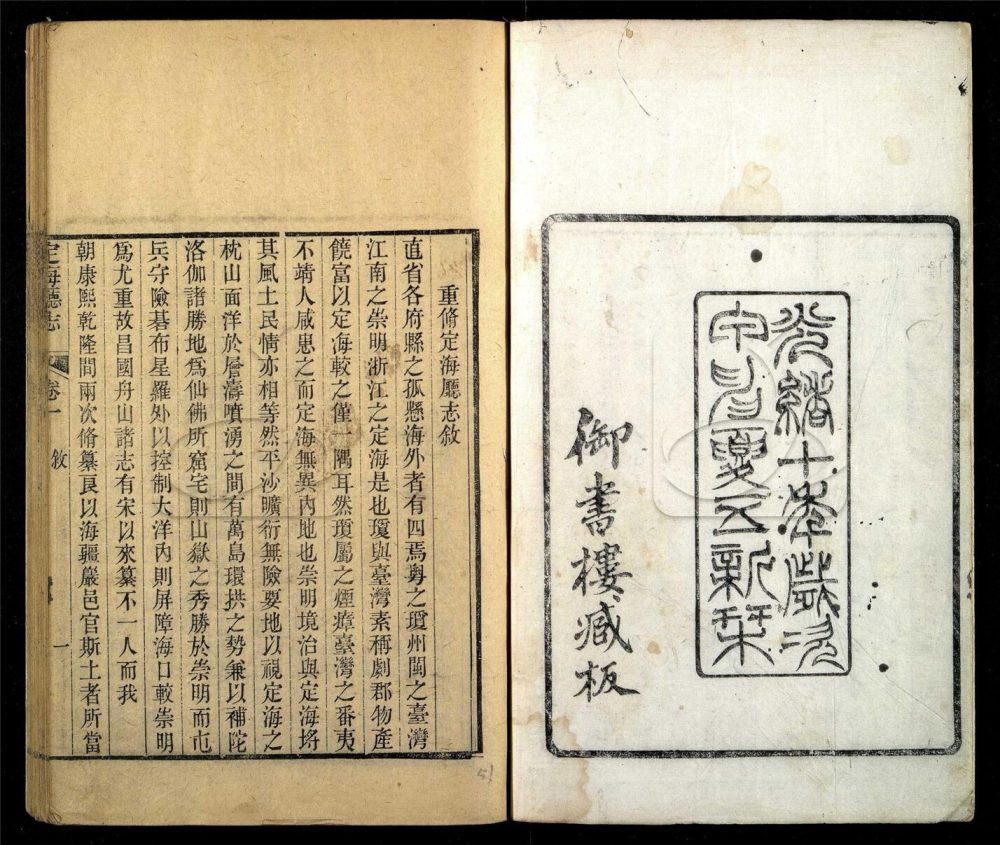 光緒十年歲次
甲申夏五新栞
御書樓臧板
重脩定海廳志敘
直省各府縣之孤懸海外者有四焉粵之瓊州閩之臺灣
江南之崇明浙江之定海是也瓊與臺灣素稱劇郡物產
饒富以定海較之僅一隅耳然瓊屬之煙瘴臺灣之番夷
不靖人咸患之而定海無異內地也崇明境治與定海埒
其風土民情亦相等然平沙曠衍無險要地以視定海之
枕山面洋於層濤噴湧之間有萬島環拱之勢兼以補陀
洛伽諸勝地爲仙佛所窟宅則山嶽之秀勝於崇明而屯
兵守險碁布星羅外以控制大洋內則屏障海口較崇明
爲尤重故昌國舟山諸志有宋以來纂不一人而我
朝康熙乾隆間兩次脩纂良以海疆嚴邑官斯土者所當
定海廳志 卷一 敘 一
51